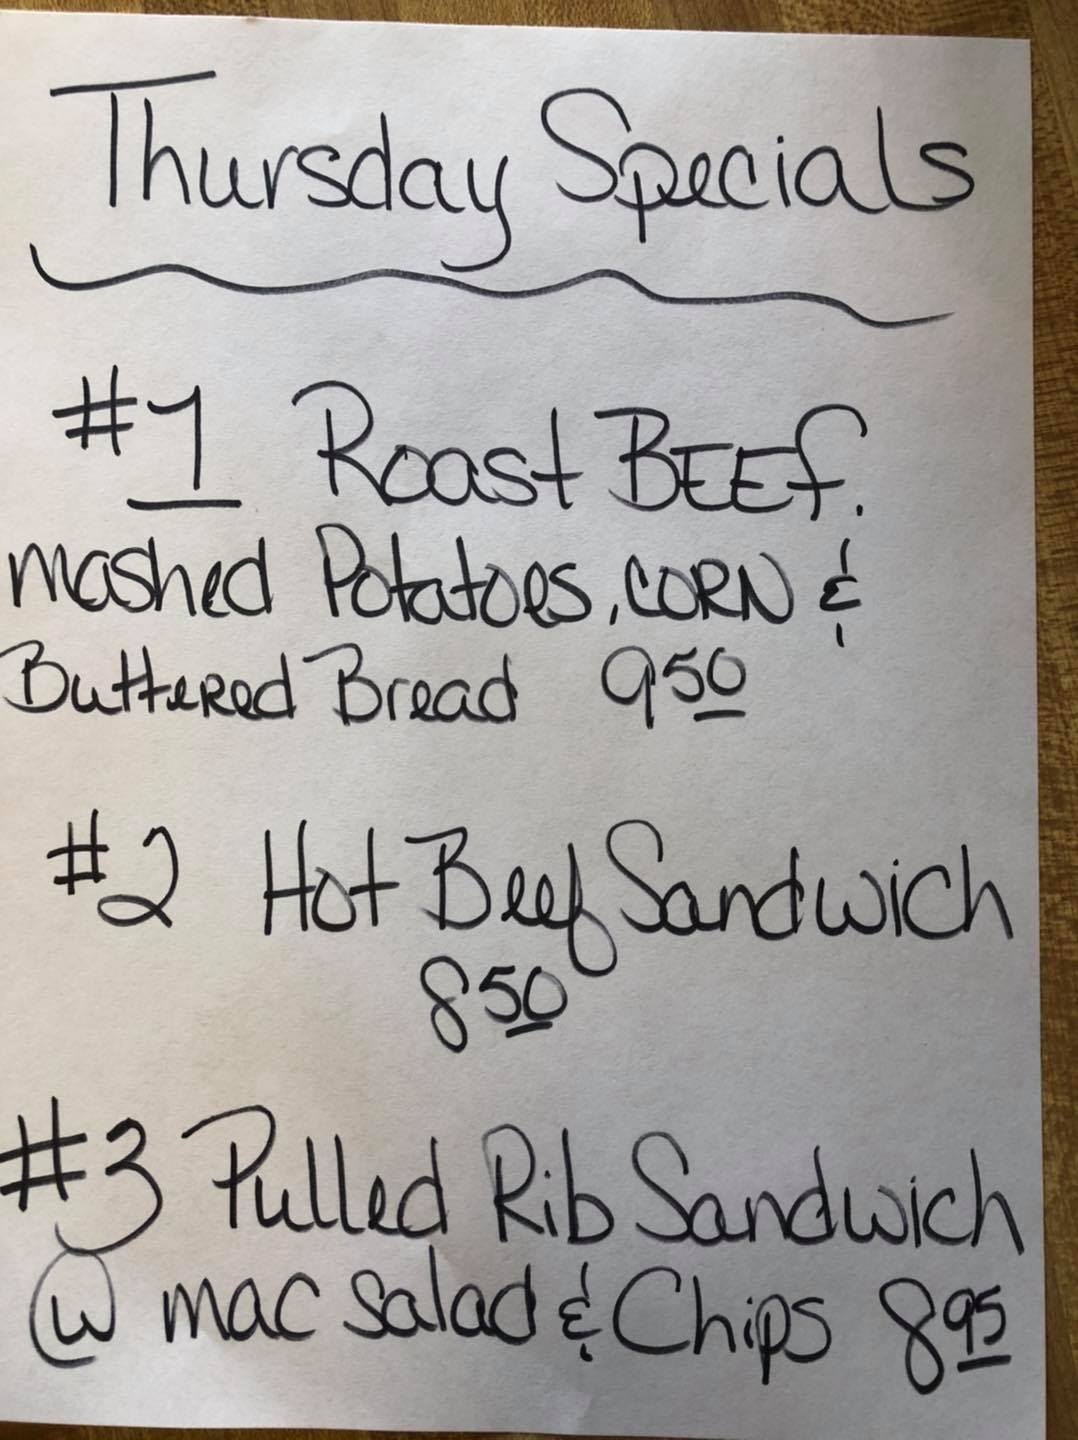 Thursday Specials
#1 Roast BEEf.
mashed Potatoes, CORN &
Buttered Bread 950
#2 Hot Beef Sandwich
850
#3 Pulled Rib Sandwich
w mac salad & Chips 895